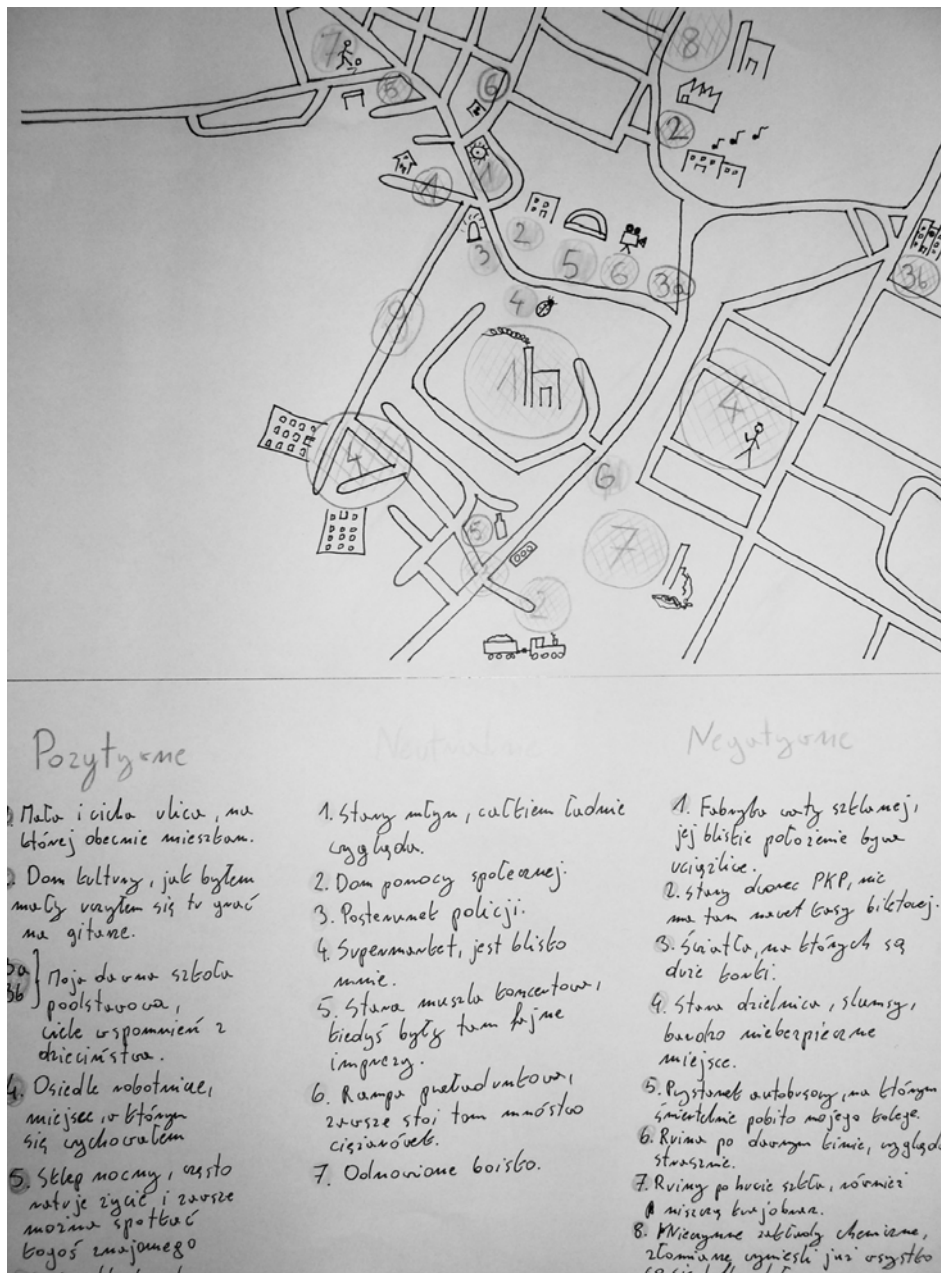 7
8
5
6
2
1
1
3
2
5
6
3a
3b
9
4
1
4
4
6
5
7
2
Pozytywne
Mała i cicha ulica, na
której obecnie mieszkam.
Dom kultury, jak byłem
mały uczyłem się tu grać
na gitarze.
3a
3b } Moja dawna szkoła
podstawowa,
wiele wspomnień z
dzieciństwa.
4. Osiedle robotnicze,
miejsce, w którym
się wychowałem
5. Sklep nocny, często
ratuje życie i zawsze
można spotkać
kogoś znajomego
Neutralne
1. Stary młyn, całkiem ładnie
wygląda.
2. Dom pomocy społecznej.
3. Posterunek policji.
4. Supermarket, jest blisko
mnie.
5. Stara muszla koncertowa,
kiedyś były tam fajne
imprezy.
6. Rampa przeładunkowa,
zawsze stoi tam mnóstwo
ciężarówek.
7. Odnowione boisko.
Negatywne
1. Fabryka waty szklanej,
jej bliskie położenie bywa
uciążliwe.
2. Stary dworzec PKP, nie
ma tam nawet kasy biletowej.
3. Światła, na których są
duże korki.
4. Stara dzielnica, slumsy,
bardzo niebezpieczne
miejsce.
5. Przystanek autobusowy, na którym
śmiertelnie pobito mojego kolegę.
6. Ruina po dawnym kinie, wygląda
strasznie.
7. Ruiny po hucie szkła, również
niszczą krajobraz.
8. Nieczynne zakłady chemiczne,
złomiarze wynieśli już wszystko